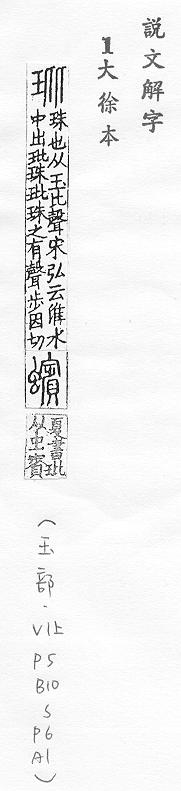 說文解字
1大徐本
玭
珠也从玉比聲宋弘云淮水
中出玭珠玭珠之有聲步因切
蠙
夏書玭
从虫賓
(玉部.V1上
P5
B10
S
P6
A1)